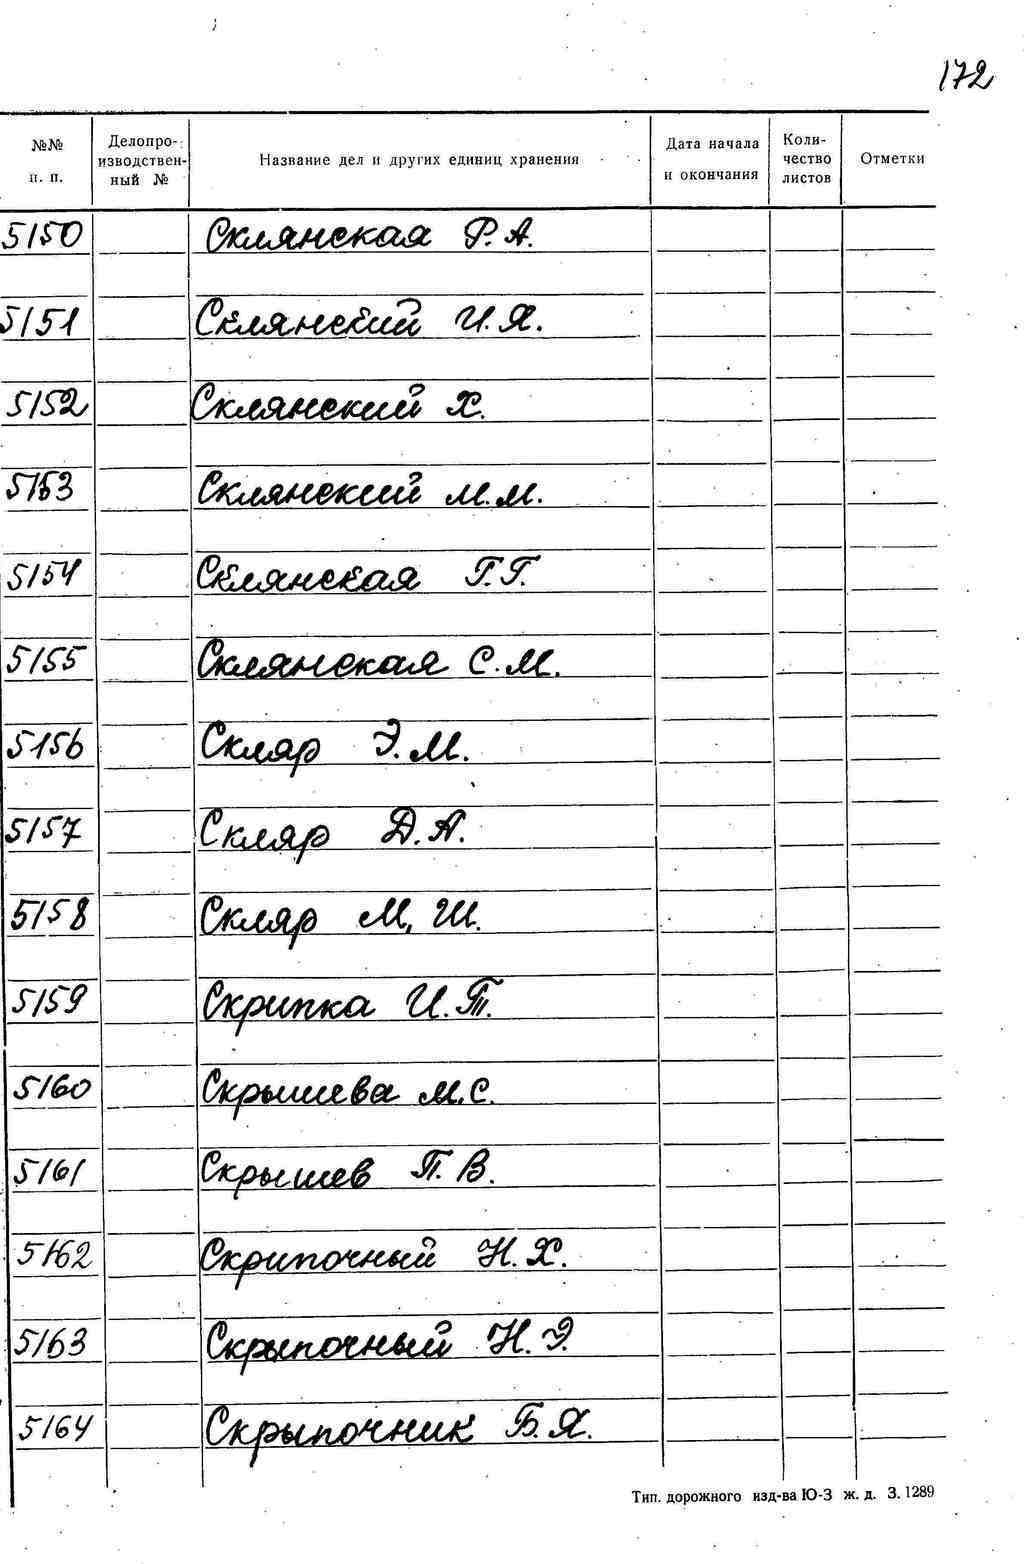 172
№№ п. п.
Делопро-изводствен-ный №
Название дел и других единиц хранения
Дата начала и окончания
Коли-чество листов
Отметки
5150 Склянская Р. А.
5151 Склянский И. Я.
5152 Склянский Х.
5153 Склянский М. М.
5154 Склянская Г. Г.
5155 Склянская С. М.
5156 Скляр Э. М.
5157 Скляр Д. А.
5158 Скляр М. Ш.
5159 Скрипка И. Т.
5160 Скрышева М. С.
5161 Скрышев П. В.
5162 Скрипочный Н. Х.
5163 Скрыпочный Н. Э.
5164 Скрыпочник Б. Я.
Тип. дорожного изд-ва Ю-З ж. д. З. 1289